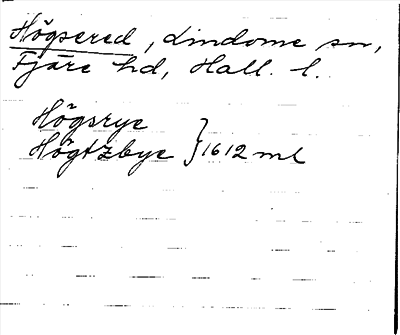 Högsered, Lindome sn,
Fjäre hd, Hall. l.
Högsrye
Högtzbye } 1612 ml